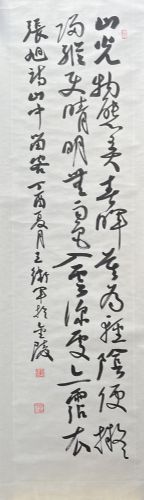 山光物態美春暉莫為輕陰便擬
歸縱使晴明無雨色入雲深處亦霑衣
張旭詩山中留客丁酉夏月王衛軍於金陵